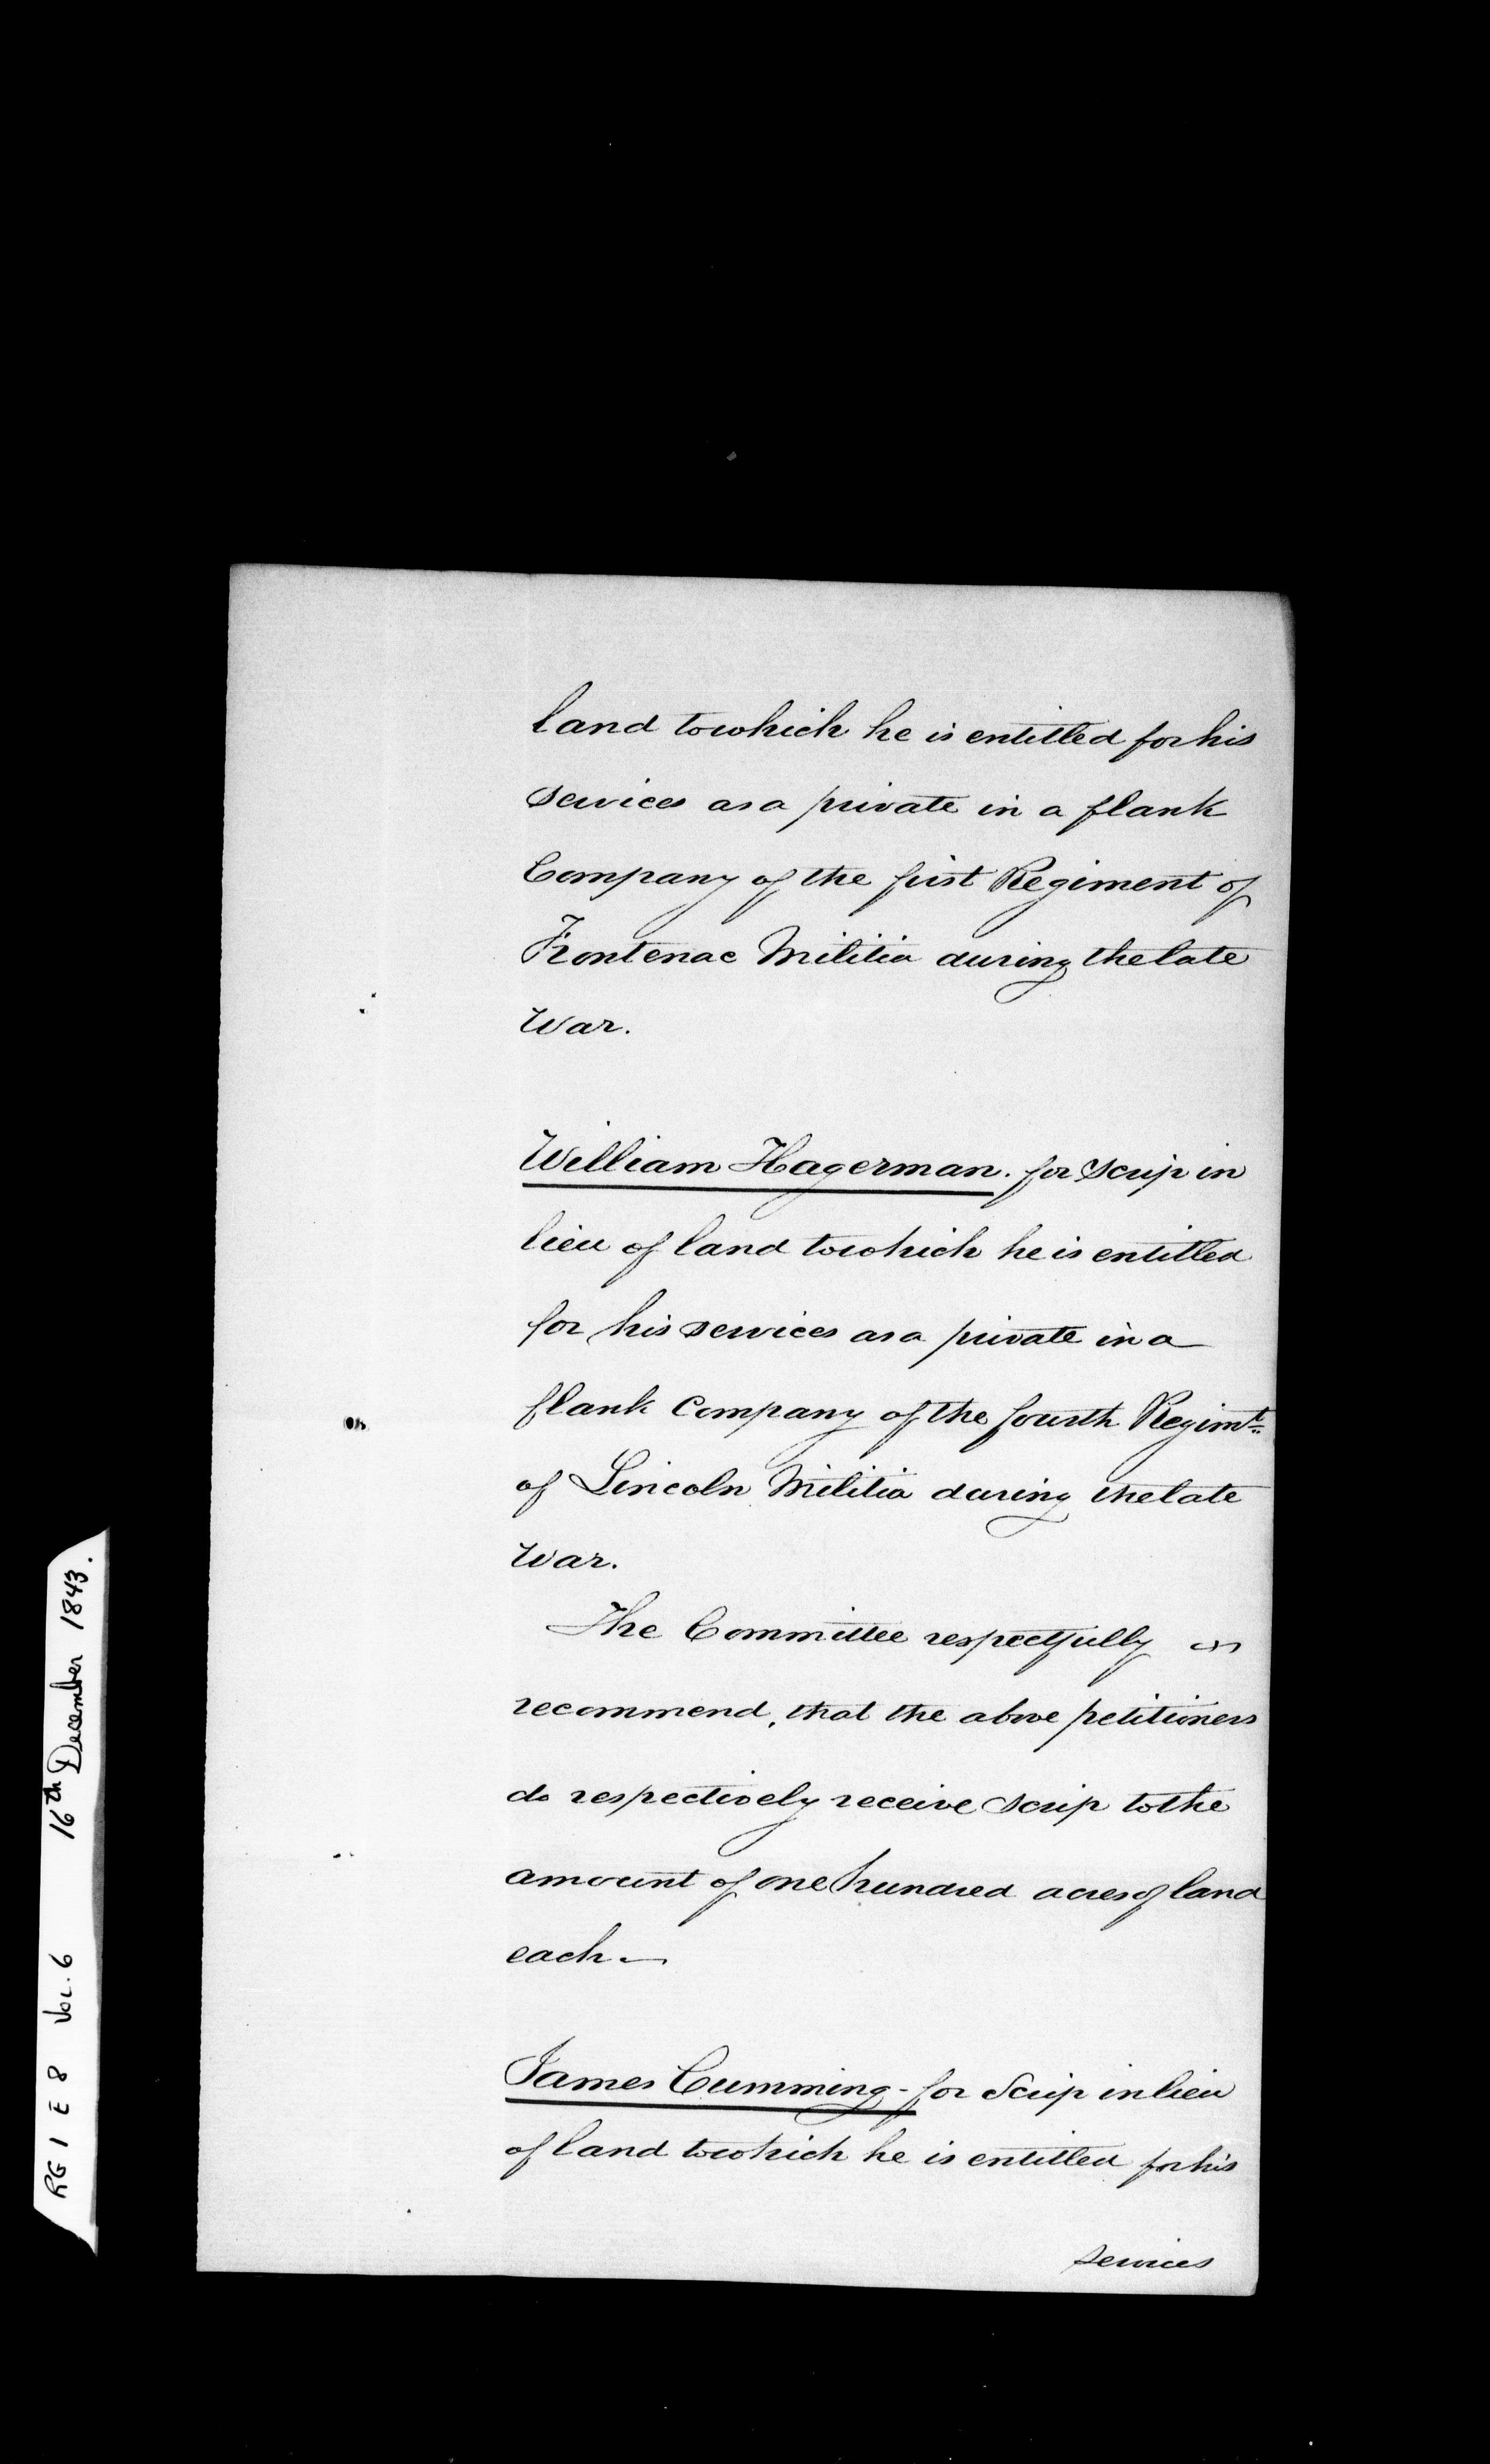 land to which he is entitled for his
services as a private in a flank
Company of the first Regiment of
Frontenac Militia during the late
War.
William Hagerman. for Scrip in
lieu of land to which he is entitled
for his services as a private in a
flank Company of the fourth Regimt.
of Lincoln Militia during the late
War.
The Committee respectfully
recommend, that the above petitioners
do respectively receive Scrip to the
amount of one hundred acres of land
each —
James Cumming - for Scrip in lieu
of land to which he is entitled for his
services
RG 1 E 8 Vol. 6 16th December 1843.